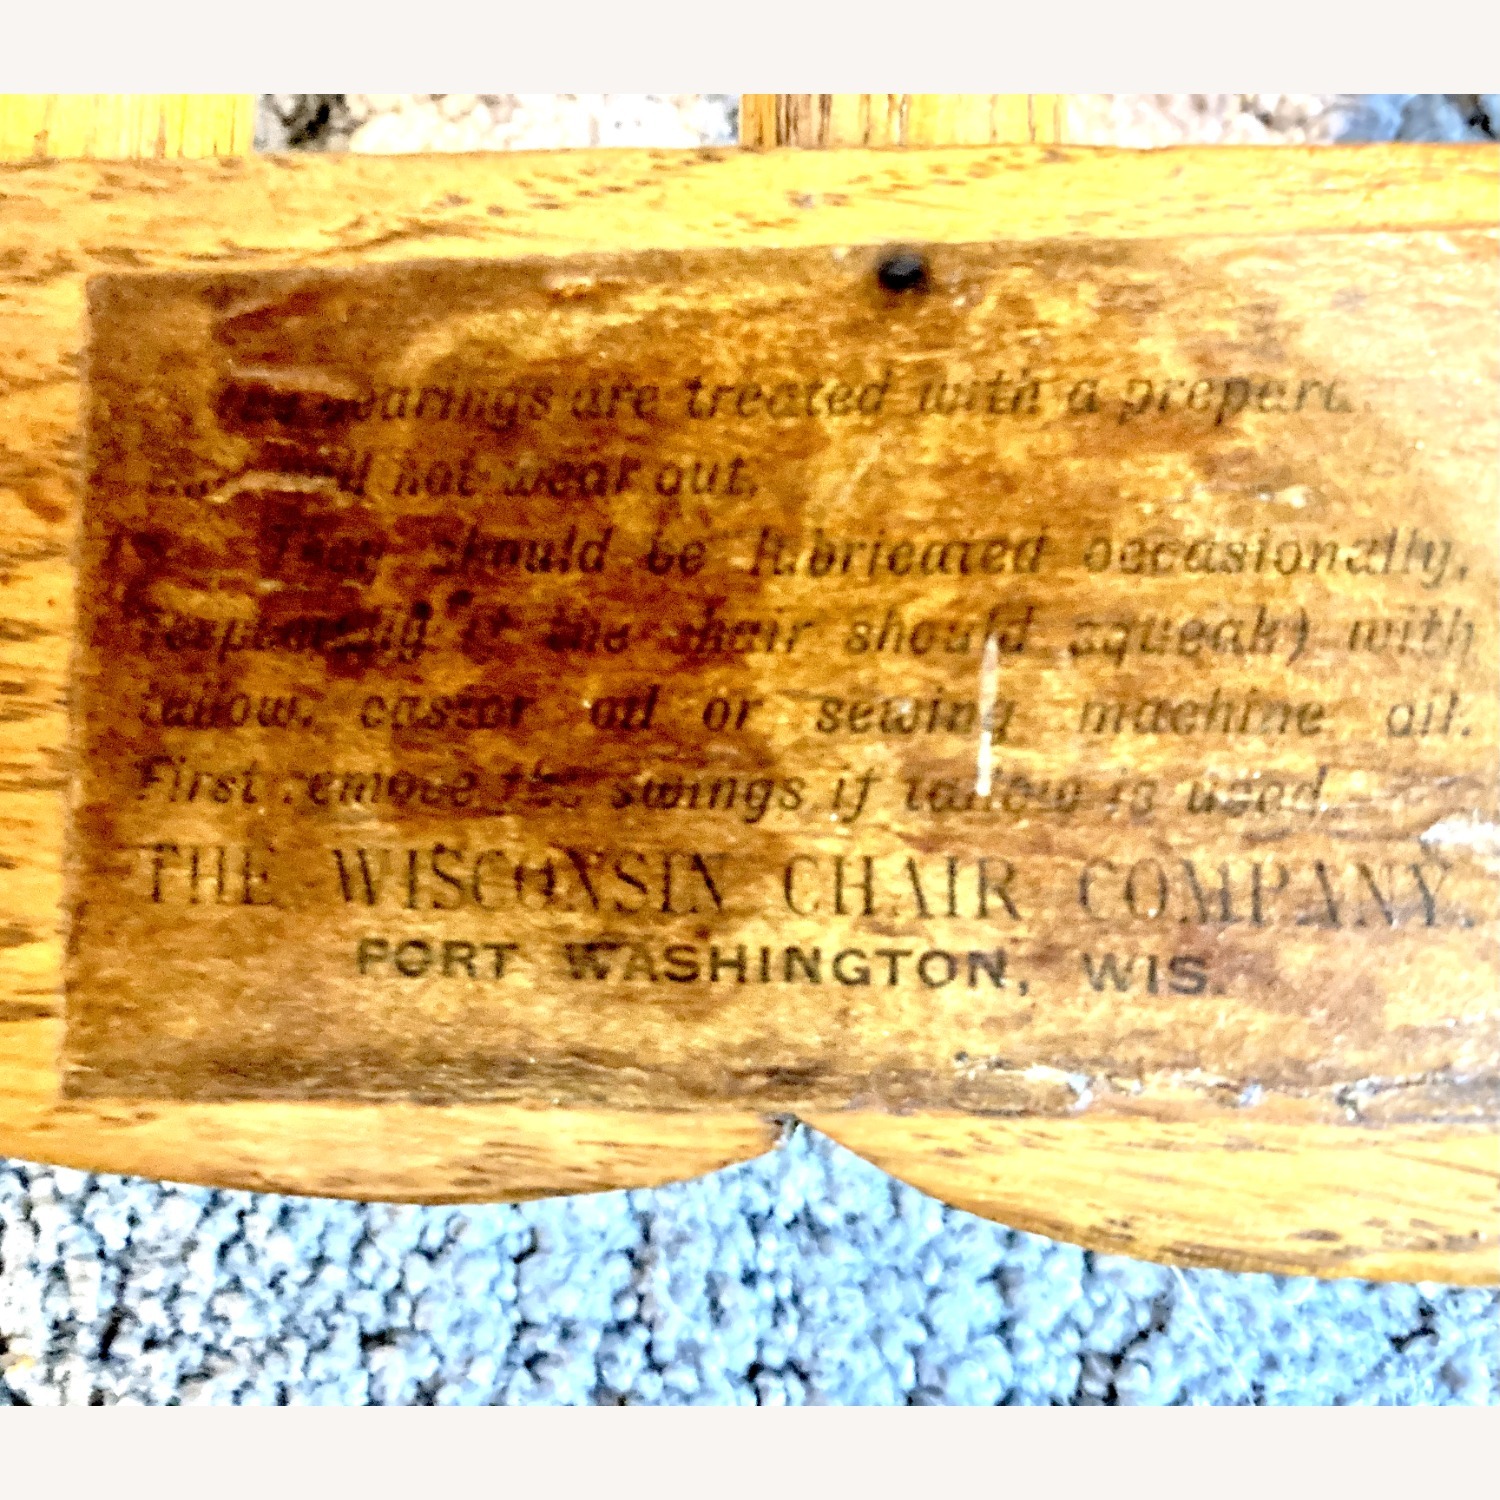 bearings are treated with a
will not wear out.
They should be lubricated occasionally,
(especially if the chair should squeak) with
tallow, castor oil or sewing machine oil.
First remove the swings if tallow is used.
THE WISCONSIN CHAIR COMPANY,
PORT WASHINGTON, WIS.